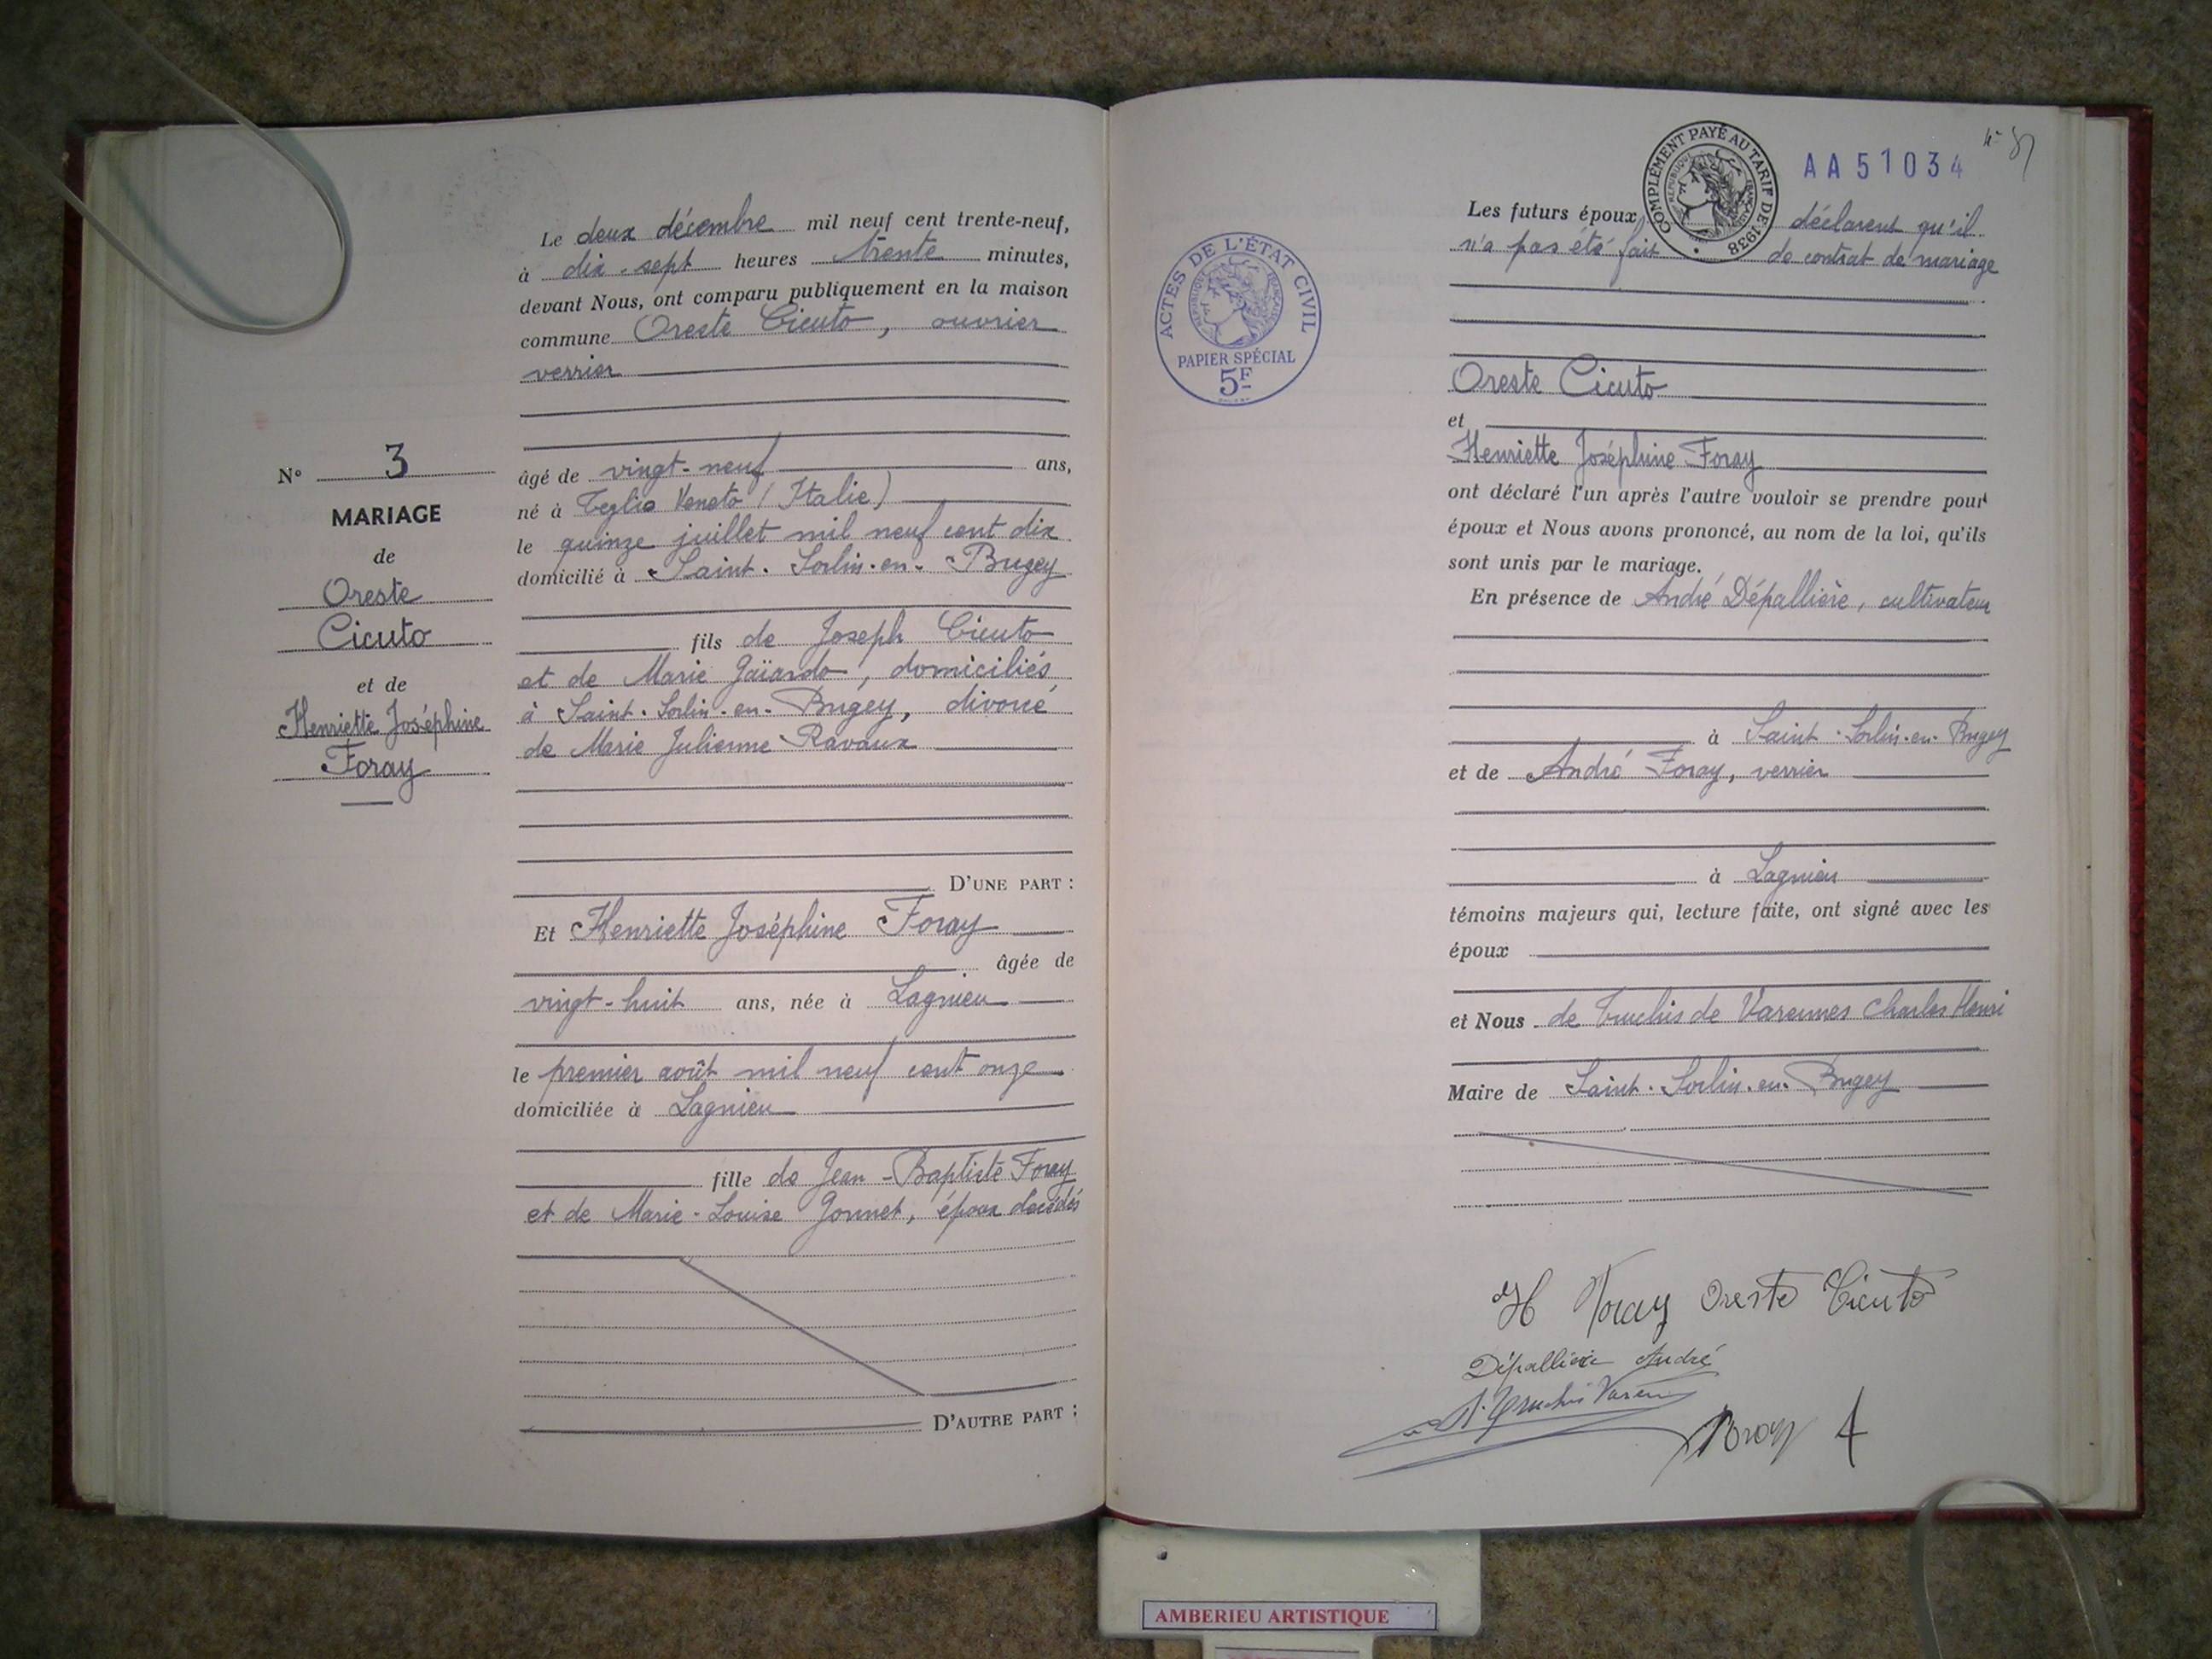 N° 3
MARIAGE
de
Oreste
Cicuto
et de
Henriette Joséphine
Foray
Le deux décembre mil neuf cent trente-neuf,
à dix-sept heures trente minutes,
devant Nous, ont comparu publiquement en la maison
commune Oreste Cicuto, ouvrier
verrier
âgé de vingt-neuf ans,
né à Teglio Veneto (Italie)
le quinze juillet mil neuf cent dix
domicilié à Saint-Sorlin-en-Bugey
fils de Joseph Cicuto
et de Marie Gaïardo, domiciliés
à Saint-Sorlin-en-Bugey, divorcé
de Marie Julienne Ravaux
D'UNE PART :
Et Henriette Joséphine Foray
âgée de
vingt-huit ans, née à Lagnieu
le premier août mil neuf cent onze
domiciliée à Lagnieu
fille de Jean-Baptiste Foray
et de Marie-Louise Gonnet, époux décédés
D'AUTRE PART :
ACTES DE L'ÉTAT CIVIL
RÉPUBLIQUE FRANÇAISE
PAPIER SPÉCIAL
5F
COMPLÉMENT PAYÉ AU TARIF DE 1938
RÉPUBLIQUE FRANÇAISE
AA51034
Les futurs époux déclarent qu'il
n'a pas été fait de contrat de mariage
Oreste Cicuto
et
Henriette Joséphine Foray
ont déclaré l'un après l'autre vouloir se prendre pour
époux et Nous avons prononcé, au nom de la loi, qu'ils
sont unis par le mariage.
En présence de André Dépallière, cultivateur
à Saint-Sorlin-en-Bugey
et de André Foray, verrier
à Lagnieu
témoins majeurs qui, lecture faite, ont signé avec les
époux
et Nous de Truchis de Varennes Charles Henri
Maire de Saint-Sorlin-en-Bugey
H Foray Oreste Cicuto
Dépallière André
de Truchis Varen
Foray A
AMBERIEU ARTISTIQUE